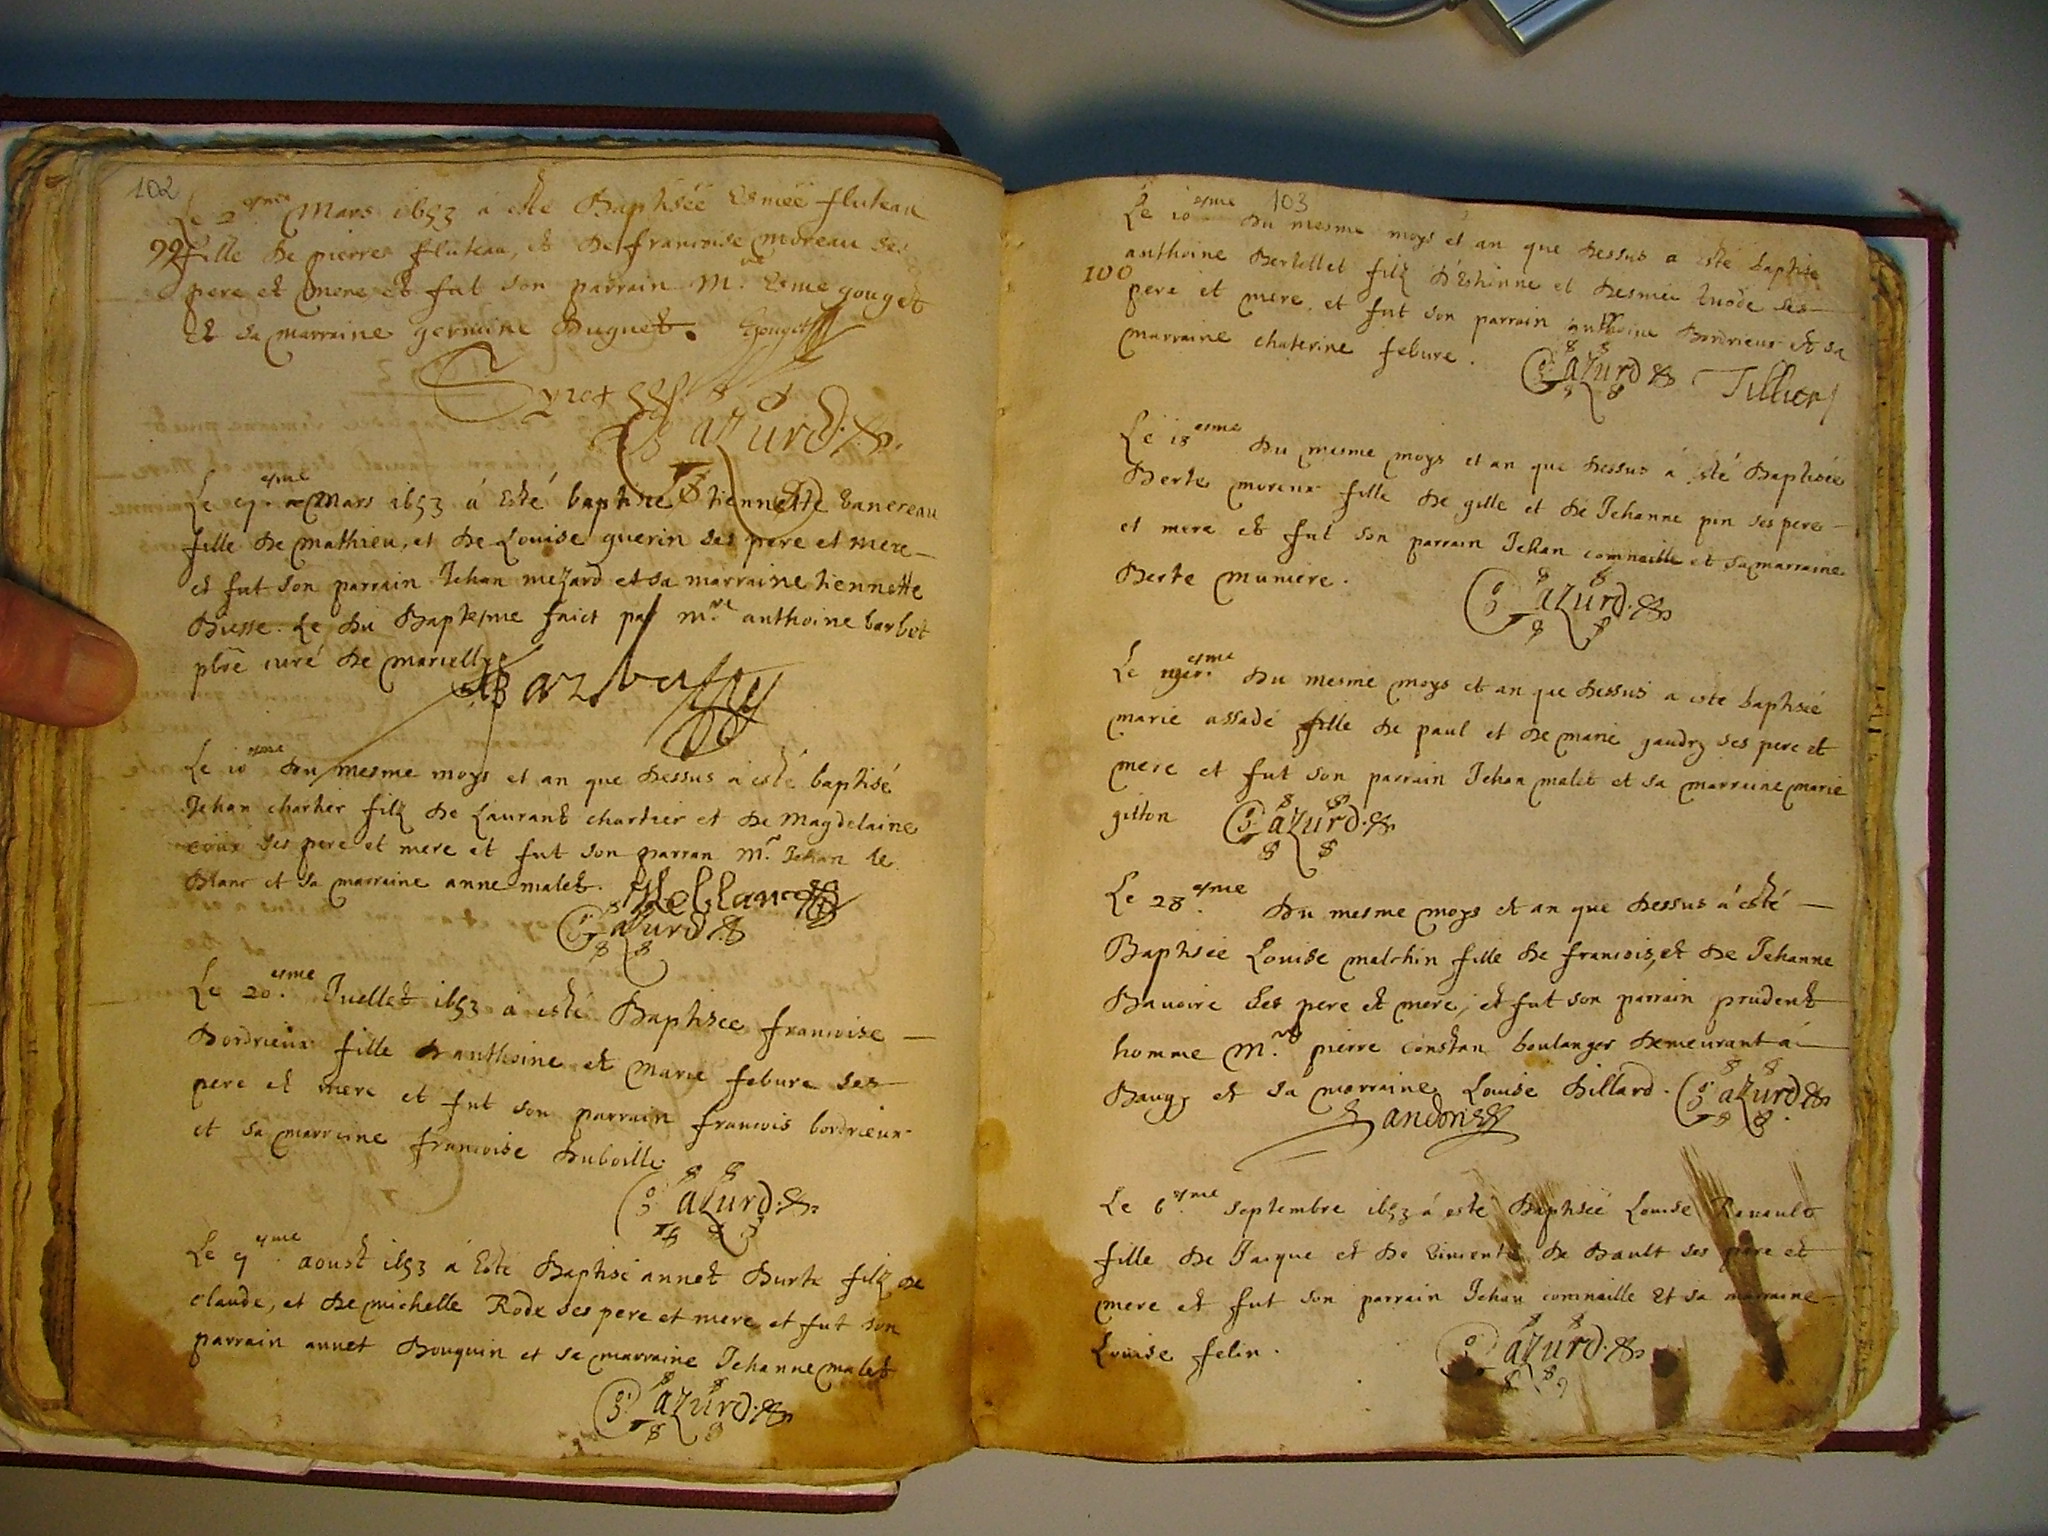 102
Le 2esme Mars 1653 a esté Baptisée Esmée fluteau
99 fille de pierre fluteau, et de francoise moreau ses
pere et mere et fut son parrain Mre Esme gouget
Et sa marraine germaine Duguet. Gouget
azurd
Le 9esme Mars 1653 á Esté baptisée tiennette banereau
fille de mathieu, et de Louise guerin ses pere et mere
et fut son parrain Jehan mezard et sa marraine tiennette
Biesse. Le du Baptesme faict par mre anthoine barbot
pbre curé de marcilly
Barbot
Le 10esme du mesme moys et an que dessus a esté baptisé
Jehan chartier filz de Laurant chartier et de Magdelaine
ses pere et mere et fut son parran Mr Jehan le
Blanc et sa marraine anne malet. J Le blanc
azurd
Le 20esme Juellet 1653 a esté Baptisée francoise
Bordrieux fille danthoine et marie febure ses
pere et mere et fut son parrain francois bordrieux
et sa marreine francoise duboille
azurd
Le 9esme aoust 1653 á Esté Baptisé annet Burte filz de
claude, et de michelle Rode ses pere et mere et fut son
parrain annet Bouquin et sa marraine Jehanne malet
azurd
103
Le 10esme du mesme moys et an que dessus a Esté baptisé
anthoine Bertellet filz d'Estienne et desmée ses
100 pere et mere, et fut son parrain anthoine Bordrieux et sa
marraine chaterine febure.
azurd Tillier
Le 18esme du mesme moys et an que dessus á Esté Baptisée
Berte moreux fille de gille et de Jehanne pin ses pere
et mere et fut son parrain Jehan comnaille et sa marraine
Berte muniere.
azurd
Le esme du mesme moys et an que dessus a esté baptisée
marie assadé fille de paul et de marie gaudry ses pere et
mere et fut son parrain Jehan malet et sa marraine marie
gitton azurd
Le 28esme du mesme moys et an que dessus á esté
Baptisée Louise malchin fille de francois, et de Jehanne
Bauoire ses pere et mere, et fut son parrain prudent
homme Mre pierre constan boulanger demeurant á
Baugy et sa marraine Louise Billard. azurd
Le 6esme Septembre 1653 á esté Baptisée Louise Renault
fille de Jacque et de de Bault ses pere et
mere et fut son parrain Jehan comnaille Et sa marraine
Louise felin.
azurd